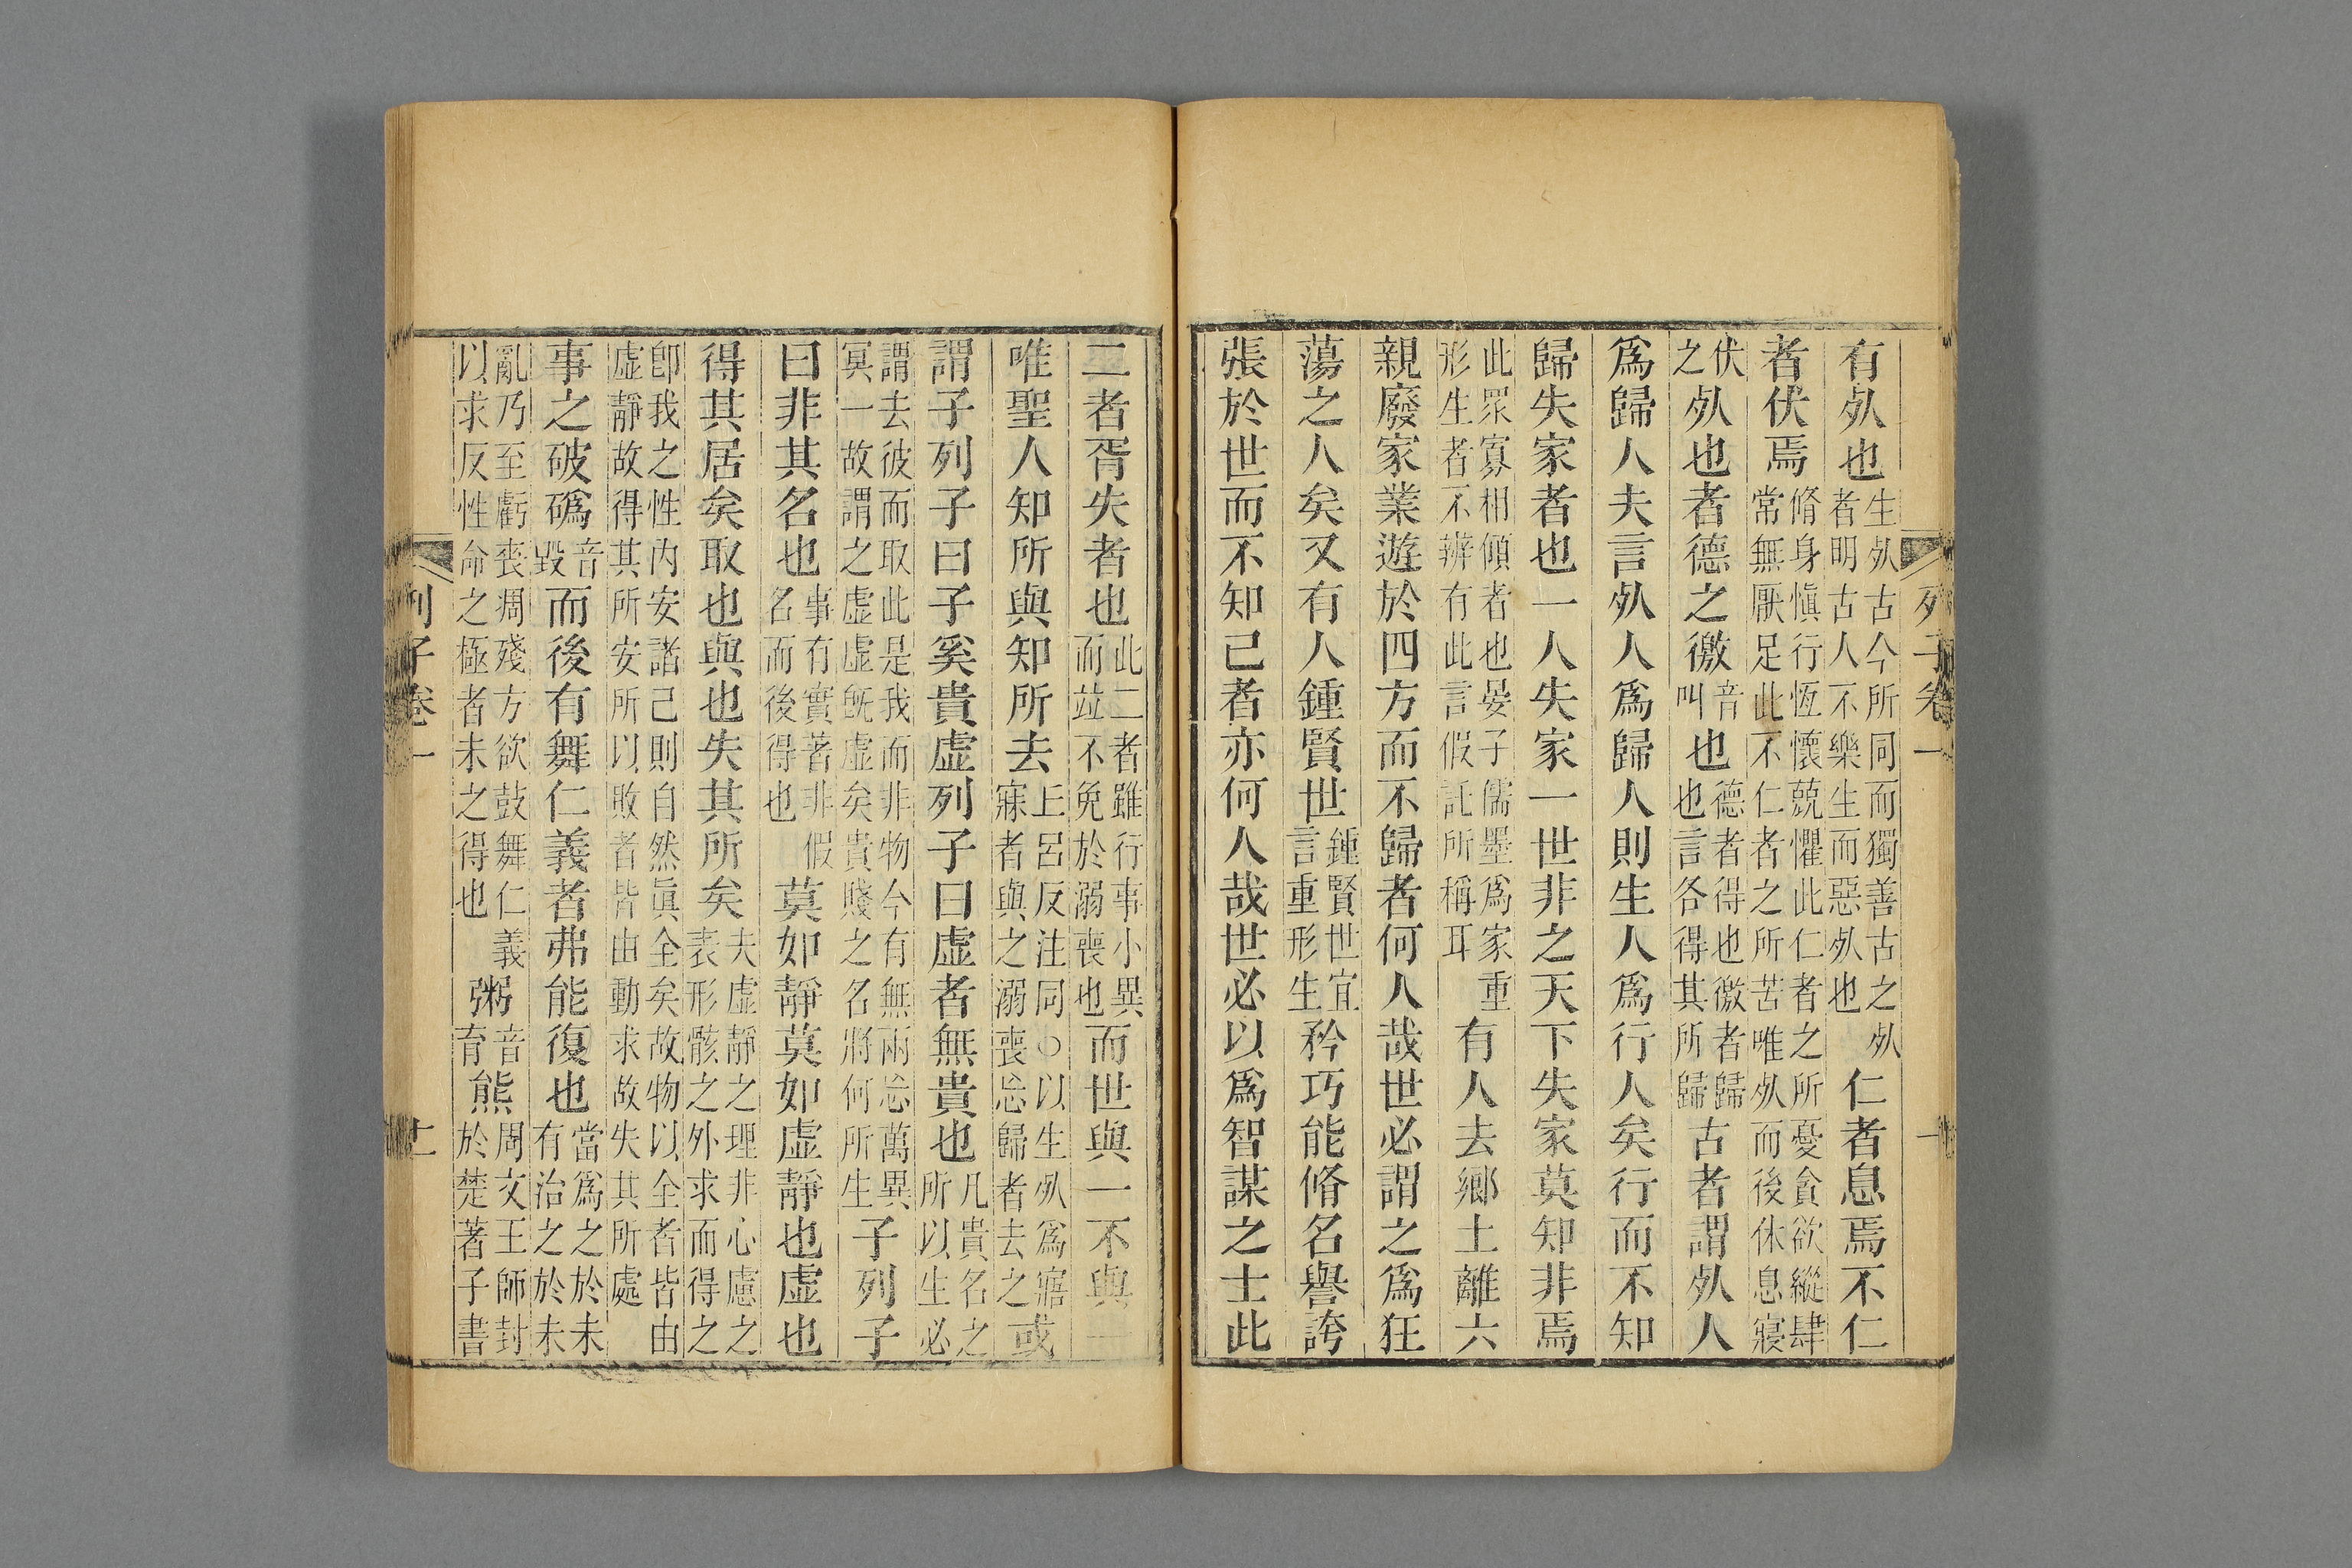 列子卷一
有死也生死古今所同而獨善古之死者明古人不樂生而惡死也仁者息焉不仁
者伏焉脩身愼行恆懷兢懼此仁者之所憂貪欲縱肆常無厭足此不仁者之所苦唯死而後休息寢
伏之死也者德之徼音叫也德者得也徼者歸也言各得其所歸古者謂死人
爲歸人夫言死人爲歸人則生人爲行人矣行而不知
歸失家者也一人失家一世非之天下失家莫知非焉
此眾寡相傾者也晏子儒墨爲家重形生者不辨有此言假託所稱耳有人去鄉土離六
親廢家業遊於四方而不歸者何人哉世必謂之爲狂
蕩之人矣又有人鍾賢世鍾賢世宜言重形生矜巧能脩名譽誇
張於世而不知己者亦何人哉世必以爲智謀之士此
二者胥失者也此二者雖行事小異而竝不免於溺喪也而世與一不與一
唯聖人知所與知所去上呂反注同○以生死爲寤寐者與之溺喪忘歸者去之或
謂子列子曰子奚貴虛列子曰虛者無貴也凡貴名之所以生必
謂去彼而取此是我而非物今有無兩忘萬異冥一故謂之虛虛旣虛矣貴賤之名將何所生子列子
曰非其名也事有實著非假名而後得也莫如靜莫如虛靜也虛也
得其居矣取也與也失其所矣夫虛靜之理非心慮之表形骸之外求而得之
卽我之性內安諸己則自然眞全矣故物以全者皆由虛靜故得其所安所以敗者皆由動求故失其所處
事之破䃣音毀而後有舞仁義者弗能復也當爲之於未有治之於未
亂乃至虧喪凋殘方欲鼓舞仁義以求反性命之極者未之得也粥音育熊周文王師封於楚著子書
列子卷一